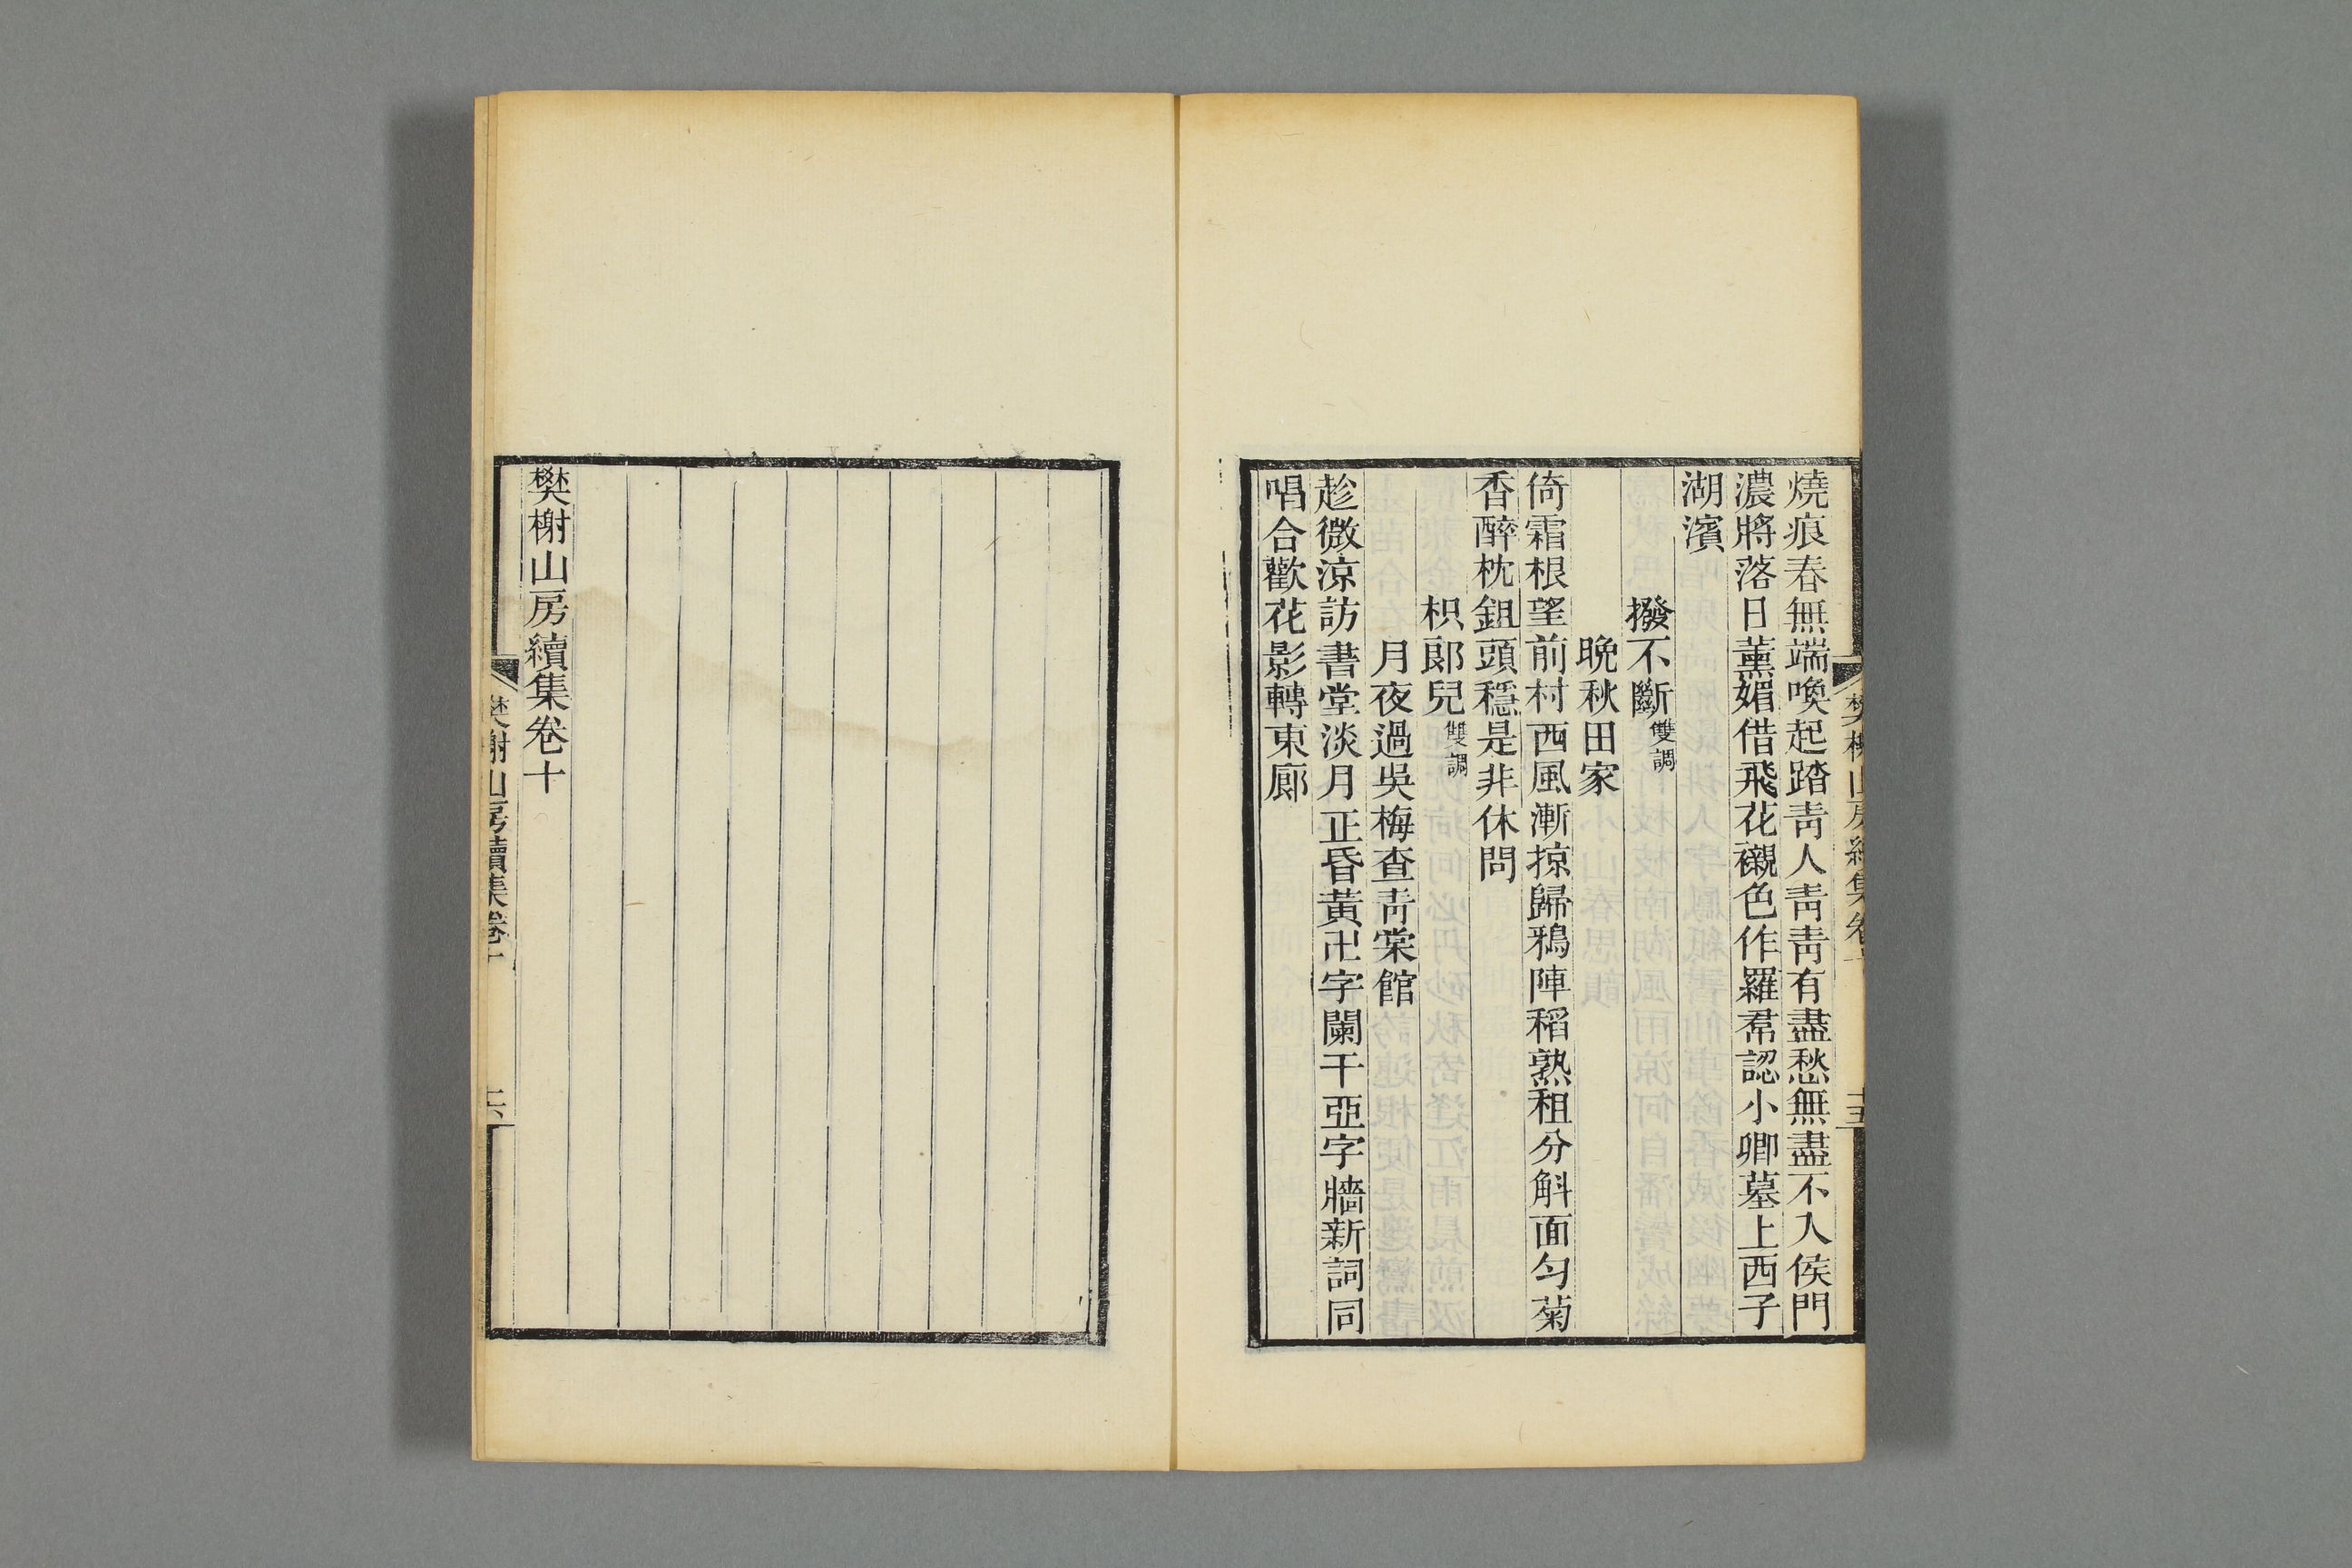 燒痕春無端喚起踏靑人靑靑有盡愁無盡不入侯門
濃將落日薰媚借飛花襯色作羅帬認小卿墓上西子
湖濱
撥不斷雙調
晚秋田家
倚霜根望前村西風漸掠歸鴉陣稻熟租分斛面匀菊
香醉枕鉏頭穩是非休問
枳郞兒雙調
月夜過吳梅查靑棠館
趁微涼訪書堂淡月正昏黃卍字闌干亞字牆新詞同
唱合歡花影轉東廊
樊榭山房續集卷十
樊榭山房續集卷十